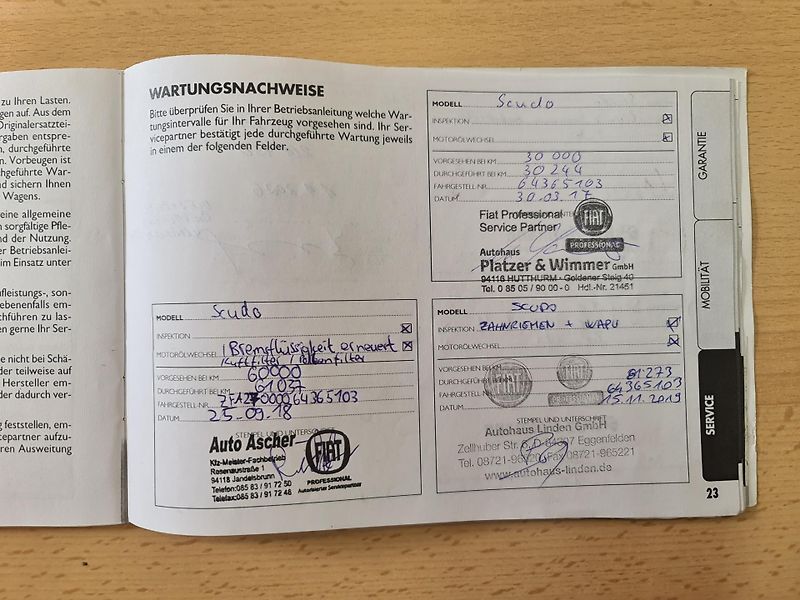 zu Ihren Lasten.
gen auf. Aus dem
Originalersatztei-
rgaben entspre-
n, durchgeführte
n. Vorbeugen ist
chgeführte War-
nd sichern Ihnen
Wagens.
eine allgemeine
n sorgfältige Pfle-
nd der Nutzung.
er Betriebsanlei-
im Einsatz unter
ufleistungs-, son-
ebenfalls em-
chführen zu las-
en gerne Ihr Ser-
e nicht bei Schä-
der teilweise auf
Hersteller em-
dadurch ver-
g feststellen, em-
cepartner aufzu-
ren Ausweitung
WARTUNGSNACHWEISE
Bitte überprüfen Sie in Ihrer Betriebsanleitung welche War-
tungsintervalle für Ihr Fahrzeug vorgesehen sind. Ihr Ser-
vicepartner bestätigt jede durchgeführte Wartung jeweils
in einem der folgenden Felder.
MODELL Scudo
INSPEKTION
MOTORÖLWECHSEL
VORGESEHEN BEI KM 30 000
DURCHGEFÜHRT BEI KM 30 244
FAHRGESTELL-NR. 64365103
DATUM 30.03.17
Fiat Professional
Service Partner
FIAT
PROFESSIONAL
Autohaus
Platzer & Wimmer GmbH
94116 HUTTHURM · Goldener Steig 40
Tel. 0 85 05 / 90 00 - 0 Hdl.-Nr. 21451
MODELL Scudo
INSPEKTION
MOTORÖLWECHSEL / Bremsflüssigkeit erneuert
Luftfilter / Pollenfilter
VORGESEHEN BEI KM 60000
DURCHGEFÜHRT BEI KM 61037
FAHRGESTELL-NR. ZFA27000064365103
DATUM 25.09.18
STEMPEL UND UNTERSCHRIFT
Auto Ascher
Kfz-Meister-Fachbetrieb
Rosenaustraße 1
94118 Jandelsbrunn
Telefon:085 83 / 91 72 50
Telefax:085 83 / 91 72 48
FIAT
PROFESSIONAL
Autorisierter Servicepartner
MODELL SCUDO
INSPEKTION ZAHNRIEMEN + WAPU
MOTORÖLWECHSEL
VORGESEHEN BEI KM
DURCHGEFÜHRT BEI KM 81273
FAHRGESTELL-NR. 64365103
DATUM 15.11.2019
FIAT
FIAT
PROFESSIONAL
STEMPEL UND UNTERSCHRIFT
Autohaus Linden GmbH
Zellhuber Str. 6, D-84307 Eggenfelden
Tel. 08721-96520 Fax 08721-965221
www.autohaus-linden.de
GARANTIE
MOBILITÄT
SERVICE
23